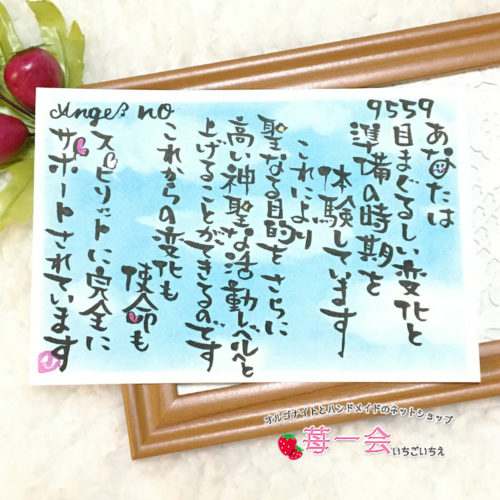 Angel no
9559
あなたは
目まぐるしい変化と
準備の時期を
体験しています
これにより
聖なる目的を さらに
高い神聖な活動レベルへと
上げることができるのです
これからの変化も
使命も
スピリットに完全に
サポートされています
オルゴナイトとハンドメイドのネットショップ
苺一会 いちごいちえ